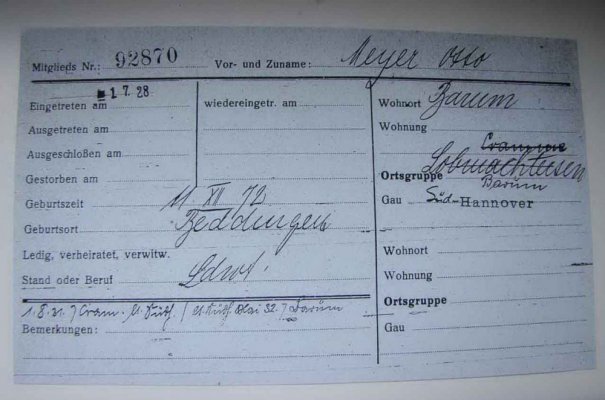 Mitglieds Nr.: 92870 Vor- und Zuname: Meyer Otto
Eingetreten am 1 7. 28
wiedereingetr. am
Ausgetreten am
Ausgeschloßen am
Gestorben am
Geburtszeit 11 XII 72
Geburtsort Beddingen
Ledig, verheiratet, verwitw.
Stand oder Beruf Ldwt.
1.8.31. Cram.
Bemerkungen:
Wohnort Barum
Wohnung
Cramme
Ortsgruppe Lobmachtersen
Barum
Gau Süd-Hannover
Wohnort
Wohnung
Ortsgruppe
Gau